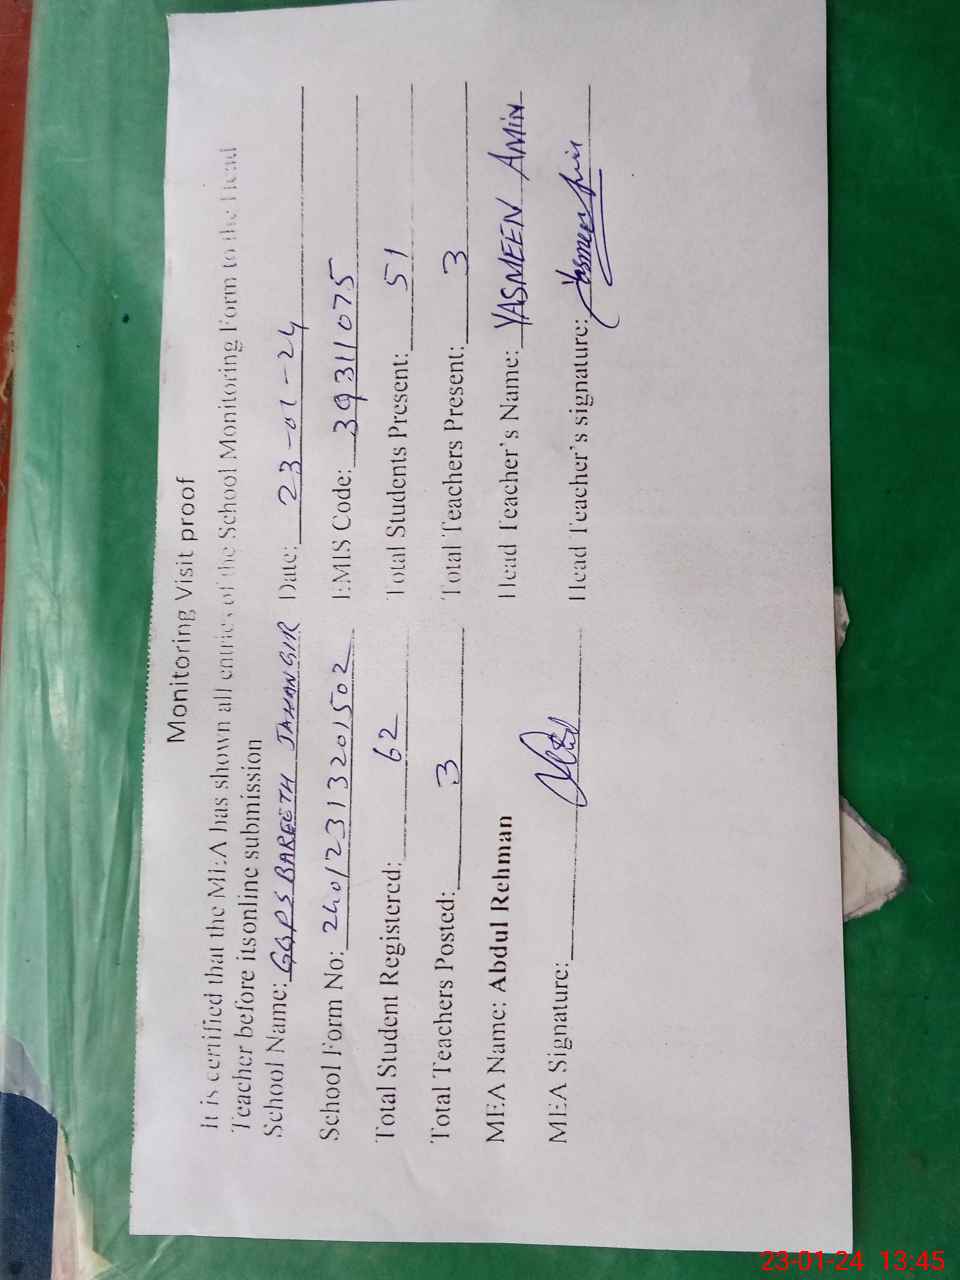 Monitoring Visit proof
It is certified that the MEA has shown all entries of the School Monitoring Form to the Head
Teacher before itsonline submission
School Name: GGPS BAREETH JAHANGIR Date: 23-01-24
School Form No: 24012313201502 EMIS Code: 39311075
Total Student Registered: 62 Total Students Present: 51
Total Teachers Posted: 3 Total Teachers Present: 3
MEA Name: Abdul Rehman Head Teacher's Name: YASMEEN AMIN
MEA Signature: Head Teacher's signature: Yasmeen Amin
23-01-24 13:45